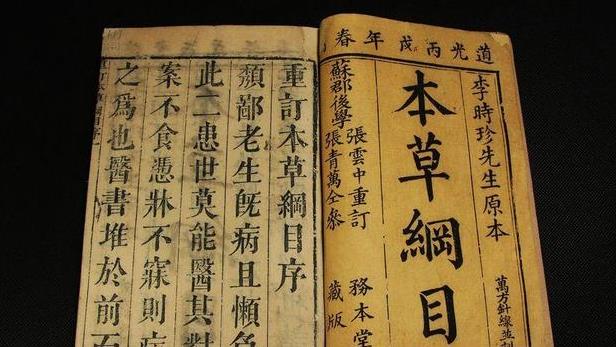 道光丙戌年春
李時珍先生原本
萬方針線並
本草綱目
張雲中重訂
蘇郡後學
張青萬仝參
務本堂
藏版
重訂本草綱目序
頽鄙老生旣病且懶
此二患世莫能醫其對
案不食憑牀不寐則病
之爲也醫書堆於前